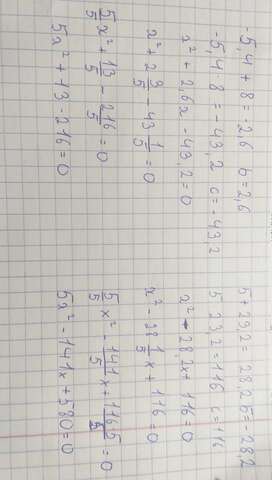 -5,4 + 8 = -2,6 b = 2,6
-5,4 · 8 = -43,2 c = -43,2
x² + 2,6x - 43,2 = 0
x² + 2 9/5 - 43 1/5 = 0
5/5 x² + 13/5 - 216/5 = 0
5x² + 13 - 216 = 0
5 + 23,2 = 28,2 b = 28,2
5 · 23,2 = 116 c = 116
x² - 28,2x + 116 = 0
x² - 28 1/5 x + 116 = 0
5/5 x² - 141/5 x + 116·5/5 = 0
5x² - 141x + 580 = 0